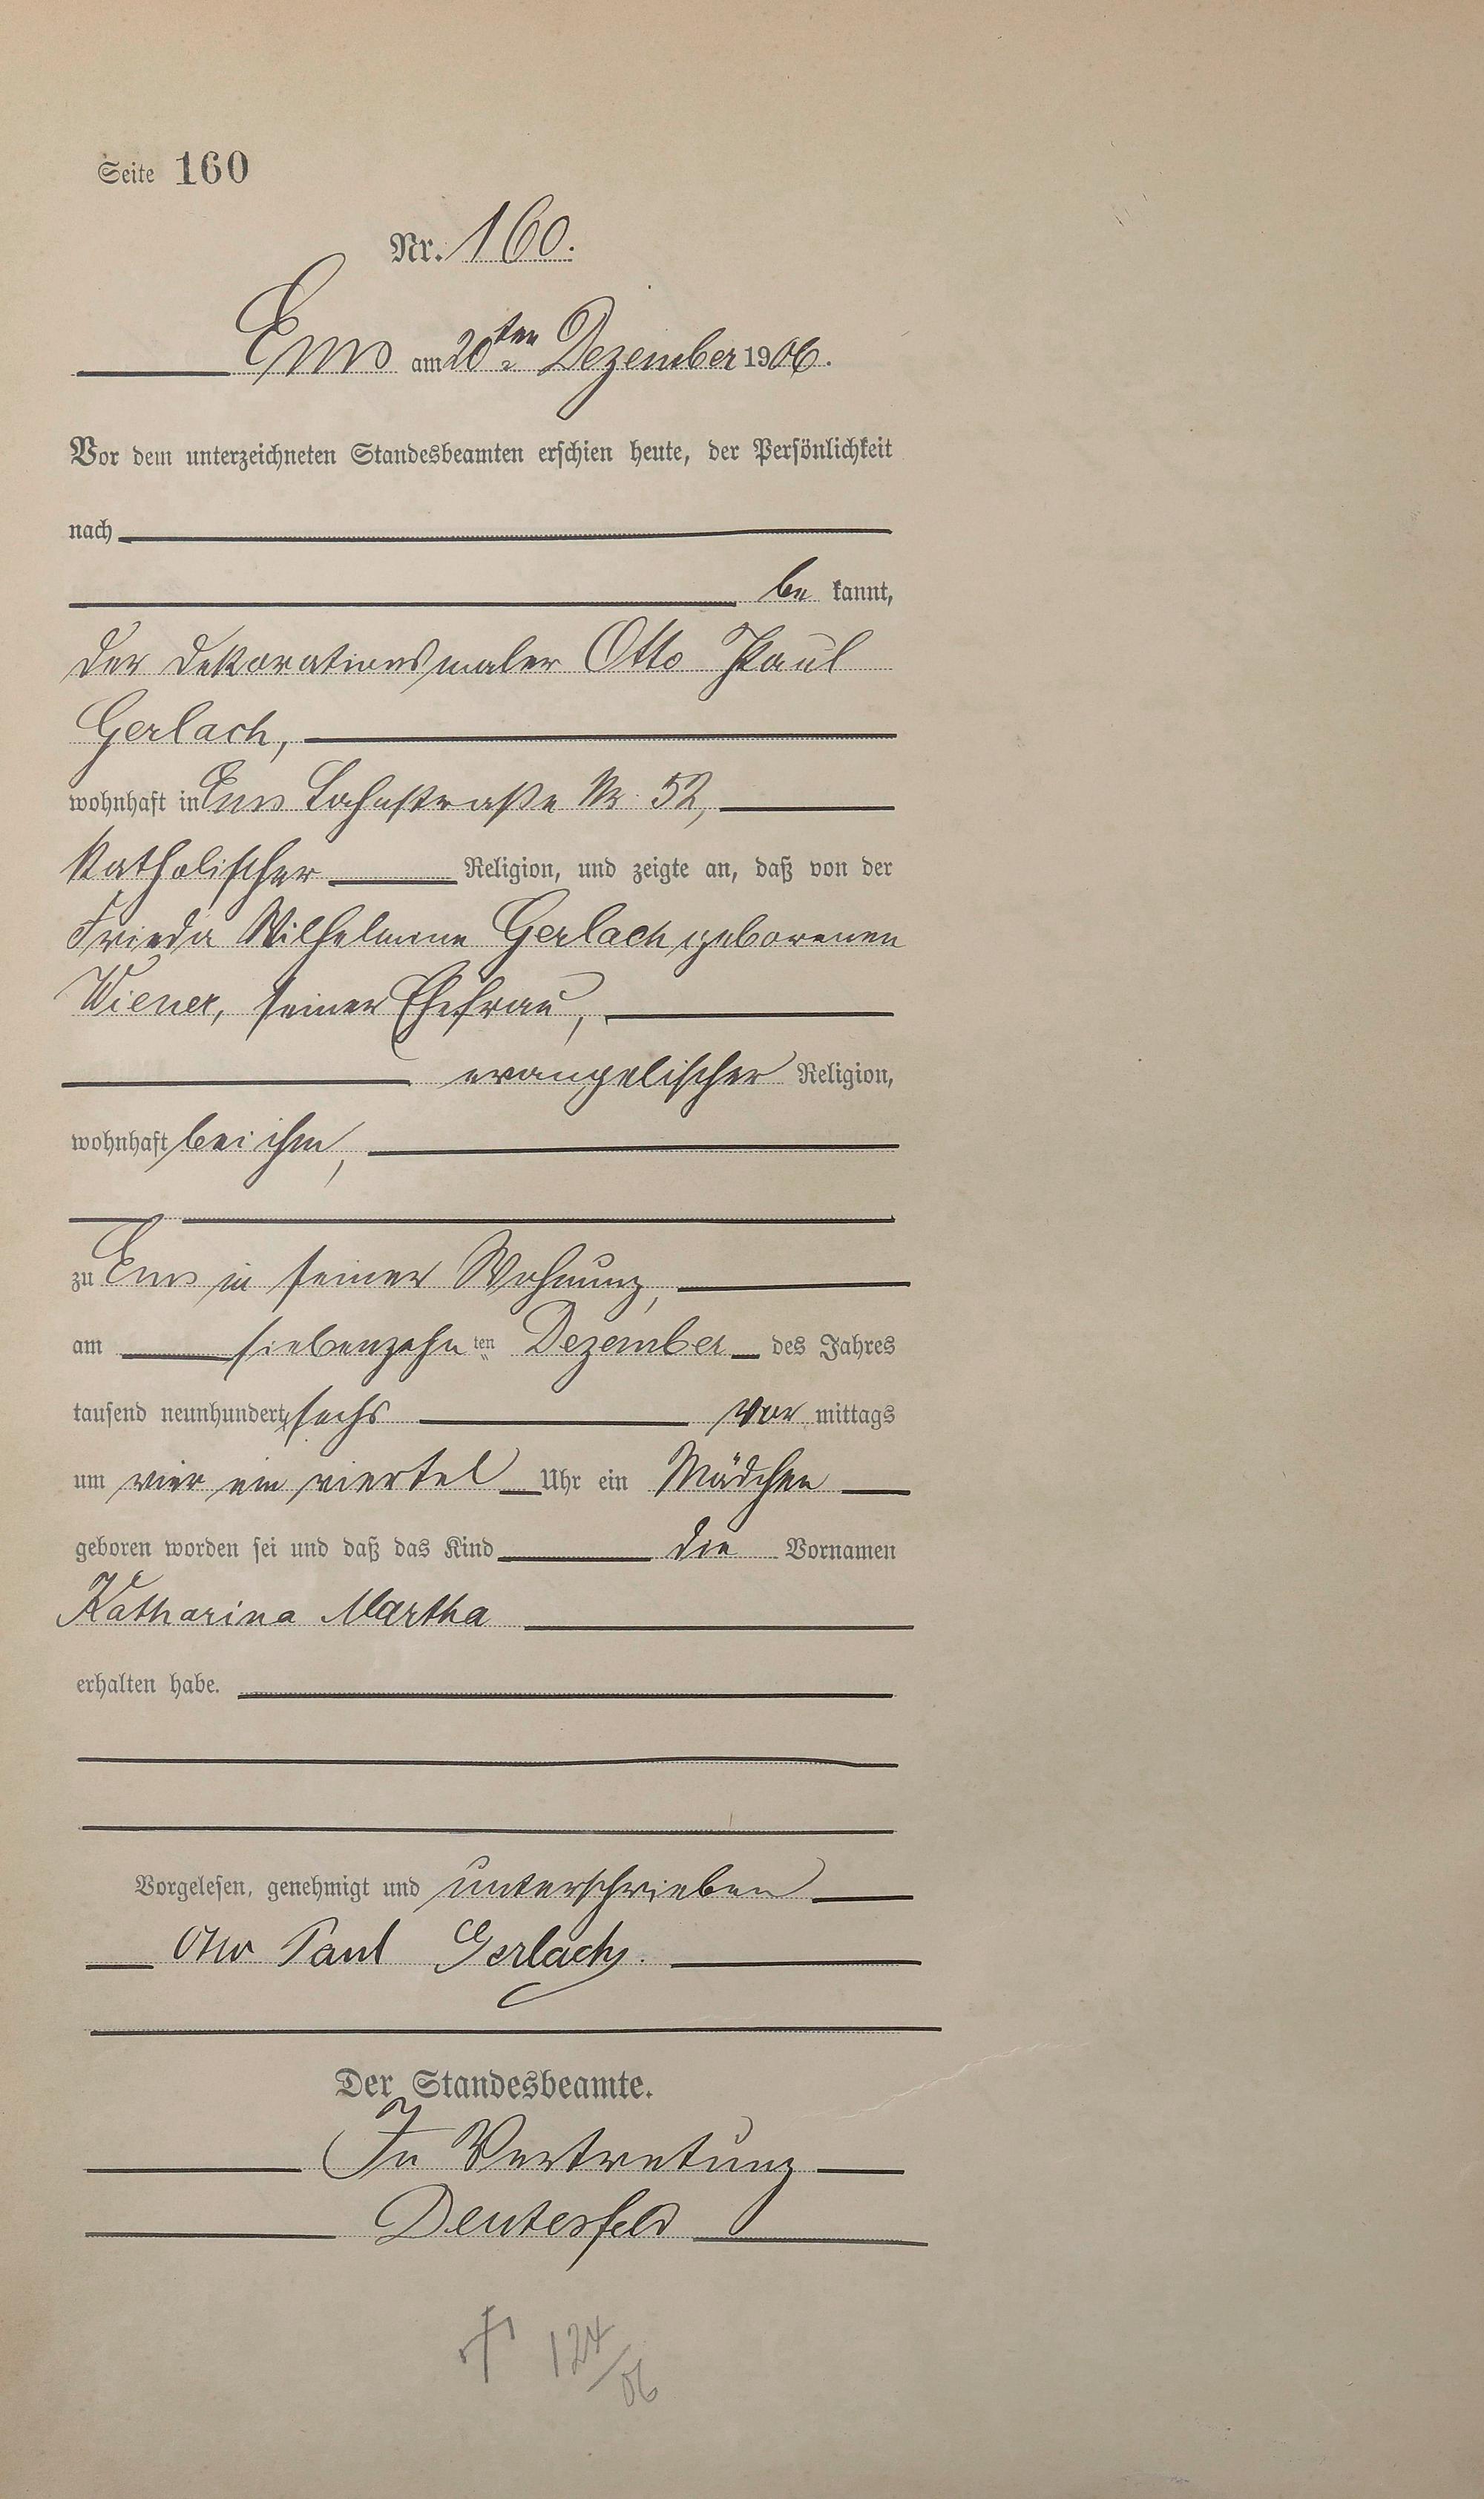 Seite 160
Nr. 160.
Ems am 20ten Dezember 1906.
Vor dem unterzeichneten Standesbeamten erschien heute, der Persönlichkeit
nach
be kannt,
der Dekorationsmaler Otto Paul
Gerlach,
wohnhaft in Ems Lahnstraße Nr. 52,
katholischer Religion, und zeigte an, daß von der
Frieda Wilhelmine Gerlach geborenen
Wiener, seiner Ehefrau,
evangelischer Religion,
wohnhaft bei ihm,
zu Ems in seiner Wohnung,
am siebenzehn ten Dezember des Jahres
tausend neunhundert sechs Vor mittags
um vier ein viertel Uhr ein Mädchen
geboren worden sei und daß das Kind die Vornamen
Katharina Martha
erhalten habe.
Vorgelesen, genehmigt und unterschrieben
Otto Paul Gerlach.
Der Standesbeamte.
In Vertretung
Deutesfeld
† 124/06